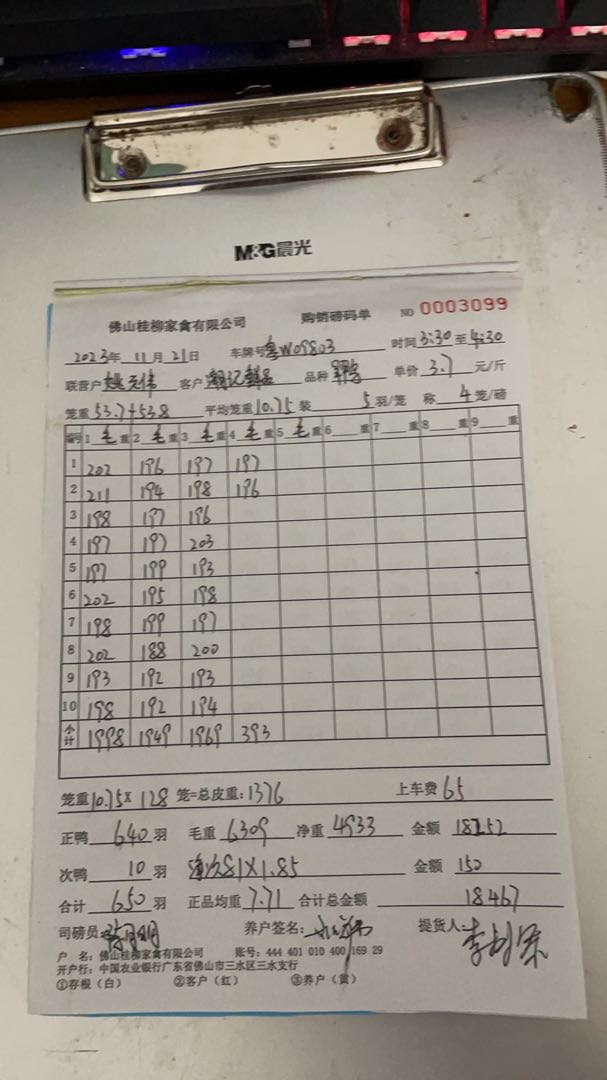 M&G晨光
佛山桂柳家禽有限公司 购销磅码单 NO 0003099
2023年 11月 21日 车牌号粤W09803 时间 3:30 至 4:30
联营户 客户 品种 单价 3.7 元/斤
笼重 53.7+53.8 平均笼重 10.75 装 5 羽/笼 称 4 笼/磅
编号 1 毛 重 2 毛 重 3 毛 重 4 毛 重 5 毛 重 6 重 7 重 8 重 9 重
1 202 196 197 197
2 211 194 198 196
3 198 197 196
4 197 197 203
5 197 199 193
6 202 195 198
7 198 199 197
8 202 188 200
9 193 192 193
10 198 192 194
小计 1998 1949 1969 393
笼重 10.75 X 128 笼=总皮重: 1376 上车费 65
正鸭 640 羽 毛重 6309 净重 4933 金额 18252
次鸭 10 羽 81 X 1.85 金额 150
合计 650 羽 正品均重 7.71 合计总金额 18467
司磅员: 养户签名: 提货人:
户 名: 佛山桂柳家禽有限公司 账号: 444 401 010 400 169 29
开户行: 中国农业银行广东省佛山市三水区三水支行
①存根（白） ②客户（红） ③养户（黄）